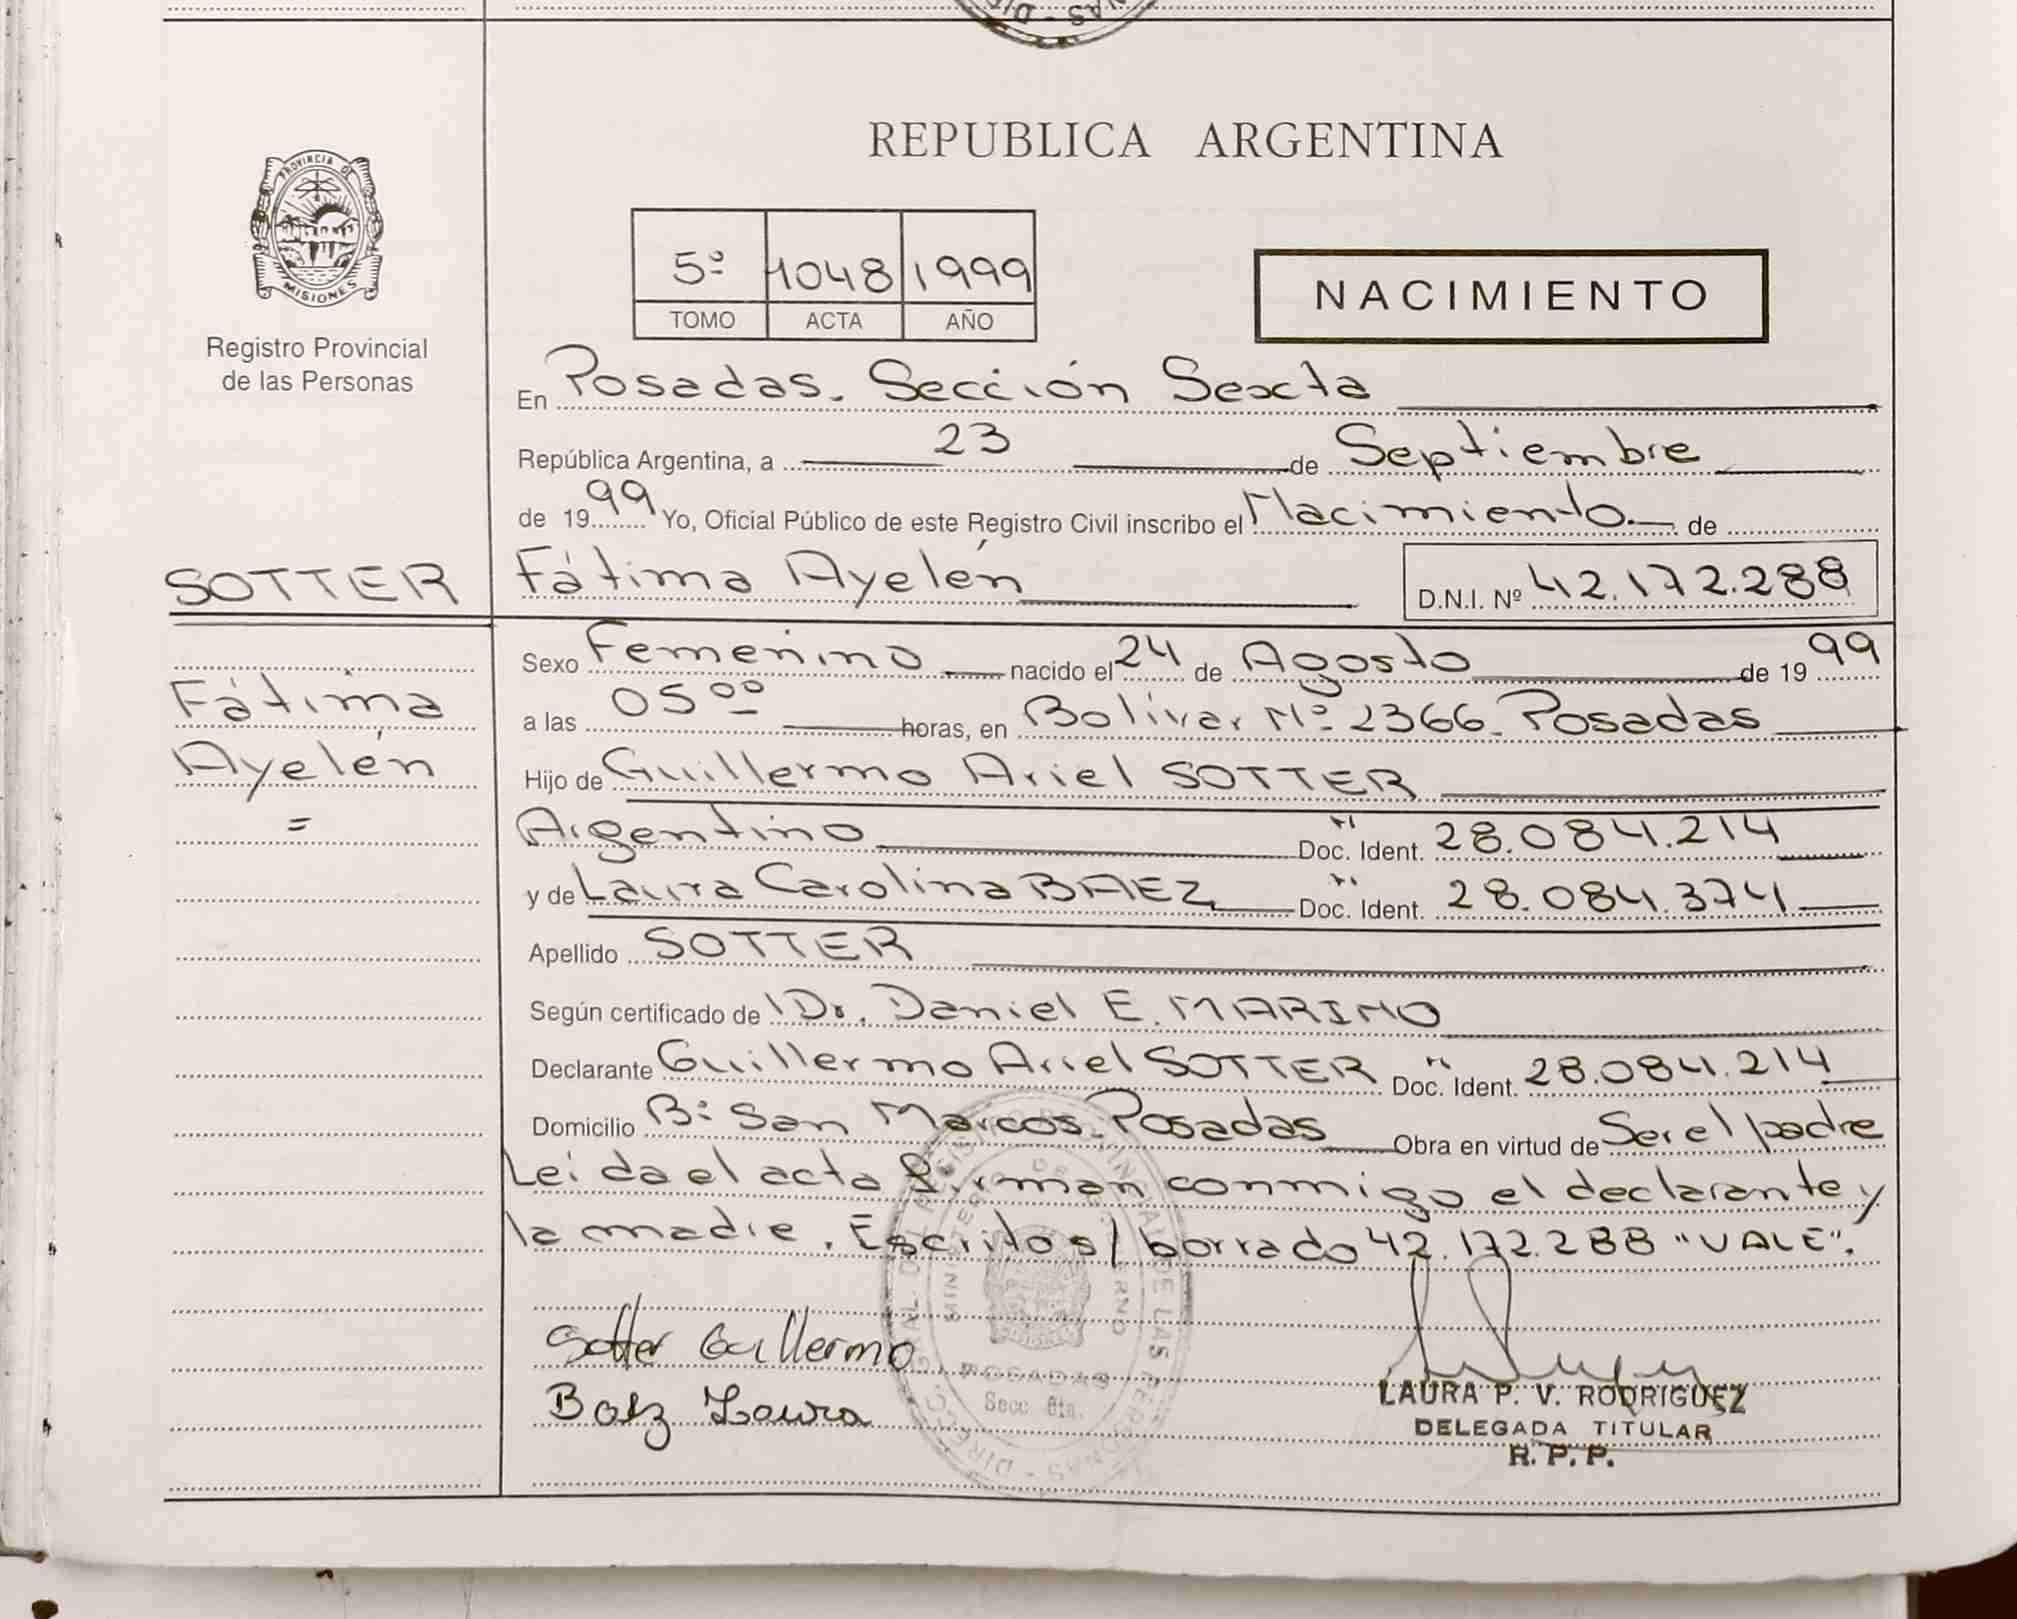 NAS - DI
REPUBLICA ARGENTINA
PROVINCIA DE
MISIONES
Registro Provincial
de las Personas
5º 1048 1999
TOMO ACTA AÑO
NACIMIENTO
En Posadas. Sección Sexta
República Argentina, a 23 de Septiembre
de 1999 Yo, Oficial Público de este Registro Civil inscribo el Nacimiento. de
SOTTER
Fátima Ayelén D.N.I. Nº 42.172.288
Sexo Femenino nacido el 24 de Agosto de 1999
Fátima
a las 05ºº horas, en Bolívar Nº 2366. Posadas
Ayelén
Hijo de Guillermo Ariel SOTTER
=
Argentino Doc. Ident. 28.084.214
y de Laura Carolina BAEZ Doc. Ident. 28.084.374
Apellido SOTTER
Según certificado de Dr. Daniel E. MARINO
Declarante Guillermo Ariel SOTTER Doc. Ident. 28.084.214
Domicilio Bº San Marcos. Posadas Obra en virtud de Ser el padre
Leída el acta firman conmigo el declarante y
la madre. Escrito s/ borrado 42.172.288 "VALE".
Sotter Guillermo
Baez Laura
POSADAS
Secc. 6ta.
LAURA P. V. RODRIGUEZ
DELEGADA TITULAR
R. P. P.